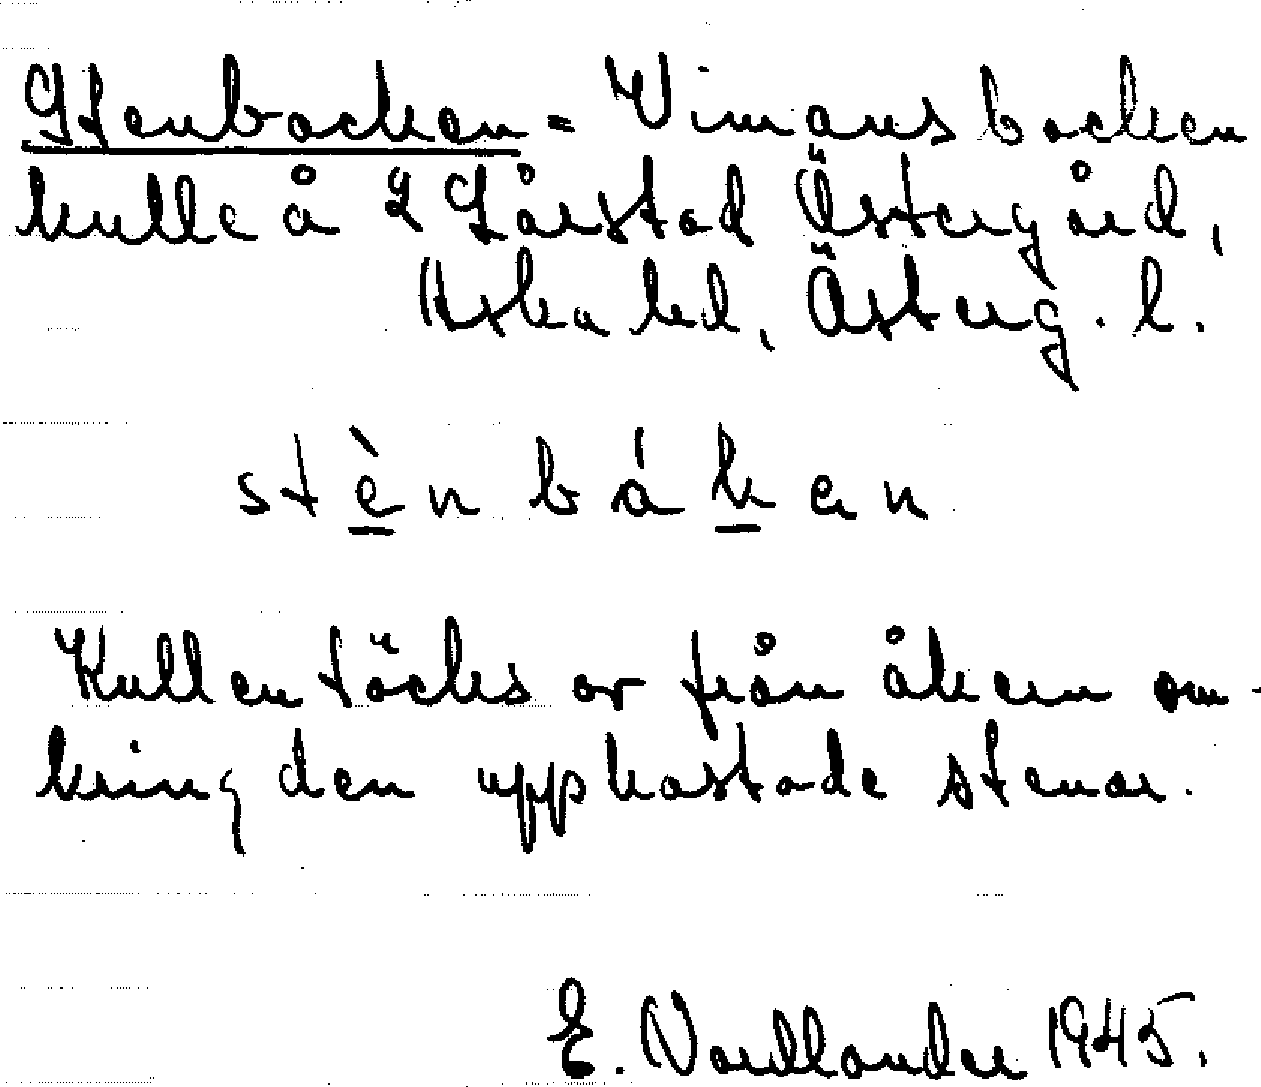 Stenbocken = Vimansbocken
kulle å 2 Gårstad Östergård,
Aska hd, Österg. l.
stènbåken
Kullen täcks av från åkern om-
kring den uppkastade stenar.
E. Nordlander 1945.